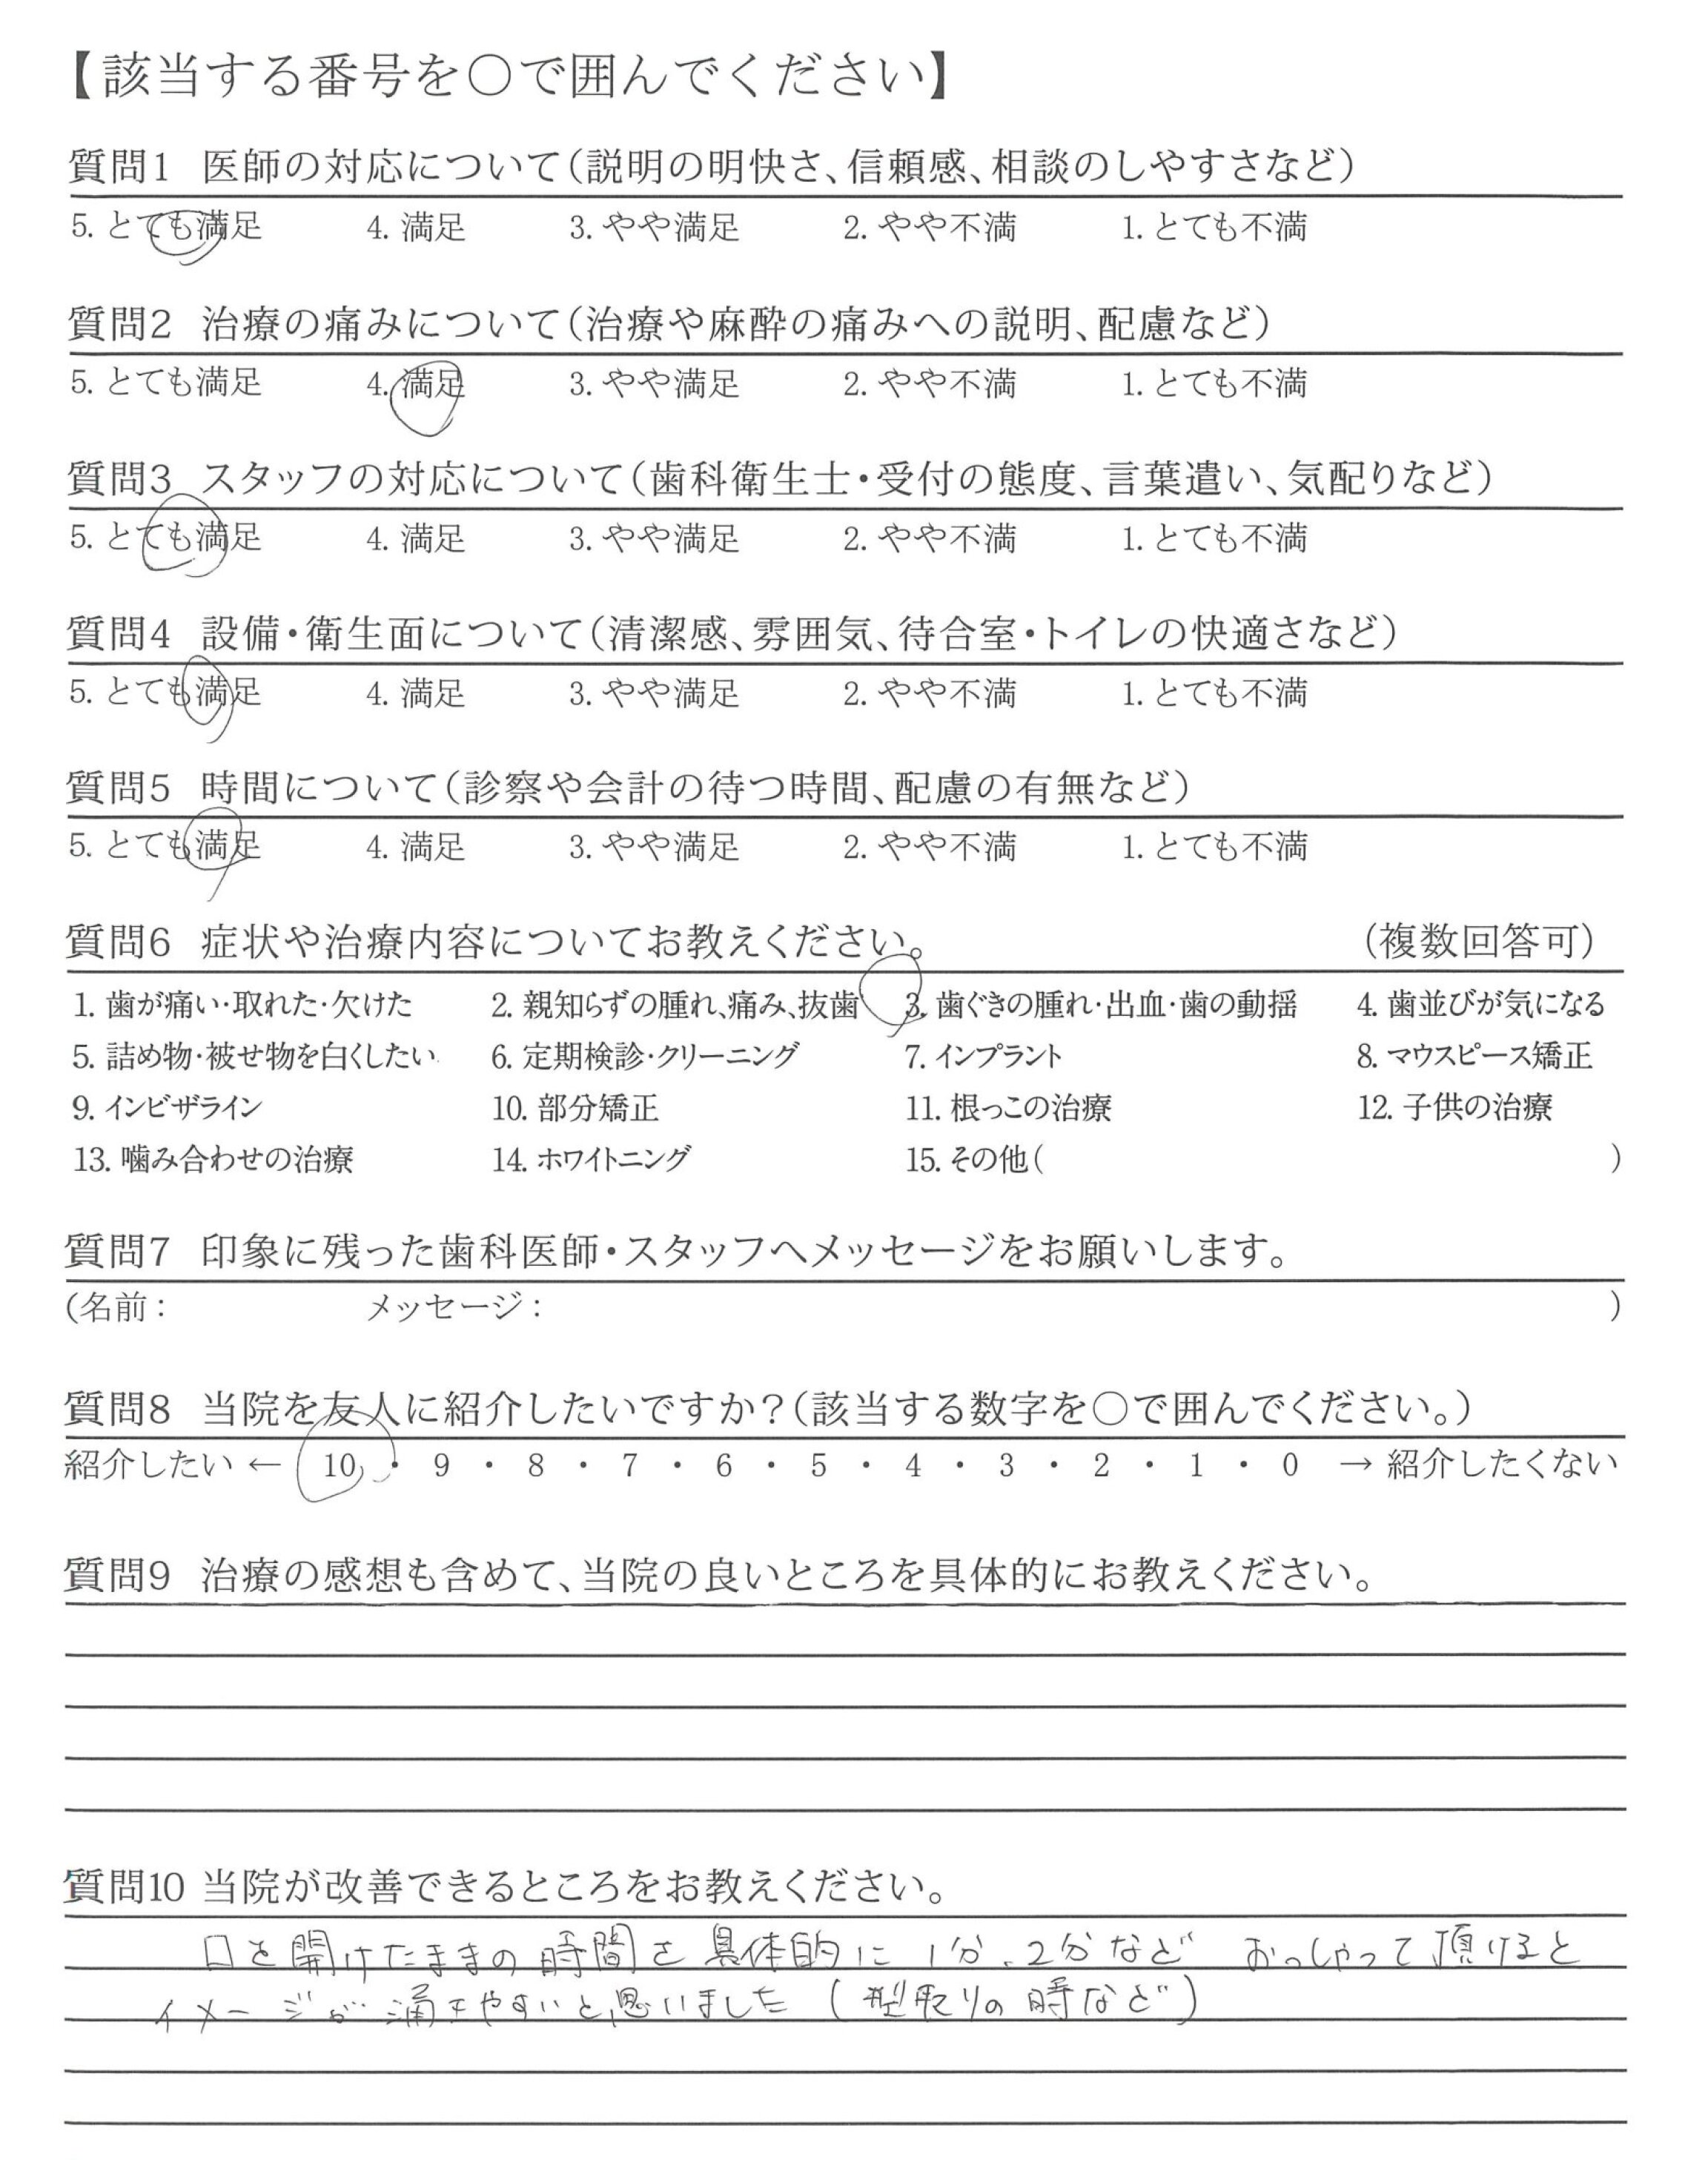 【該当する番号を○で囲んでください】
質問1 医師の対応について（説明の明快さ、信頼感、相談のしやすさなど）
5. とても満足 4. 満足 3. やや満足 2. やや不満 1. とても不満
質問2 治療の痛みについて（治療や麻酔の痛みへの説明、配慮など）
5. とても満足 4. 満足 3. やや満足 2. やや不満 1. とても不満
質問3 スタッフの対応について（歯科衛生士・受付の態度、言葉遣い、気配りなど）
5. とても満足 4. 満足 3. やや満足 2. やや不満 1. とても不満
質問4 設備・衛生面について（清潔感、雰囲気、待合室・トイレの快適さなど）
5. とても満足 4. 満足 3. やや満足 2. やや不満 1. とても不満
質問5 時間について（診察や会計の待つ時間、配慮の有無など）
5. とても満足 4. 満足 3. やや満足 2. やや不満 1. とても不満
質問6 症状や治療内容についてお教えください。 （複数回答可）
1. 歯が痛い・取れた・欠けた 2. 親知らずの腫れ、痛み、抜歯 3. 歯ぐきの腫れ・出血・歯の動揺 4. 歯並びが気になる
5. 詰め物・被せ物を白くしたい 6. 定期検診・クリーニング 7. インプラント 8. マウスピース矯正
9. インビザライン 10. 部分矯正 11. 根っこの治療 12. 子供の治療
13. 噛み合わせの治療 14. ホワイトニング 15. その他（ ）
質問7 印象に残った歯科医師・スタッフへメッセージをお願いします。
（名前： メッセージ： ）
質問8 当院を友人に紹介したいですか？（該当する数字を○で囲んでください。）
紹介したい ← 10 ・ 9 ・ 8 ・ 7 ・ 6 ・ 5 ・ 4 ・ 3 ・ 2 ・ 1 ・ 0 → 紹介したくない
質問9 治療の感想も含めて、当院の良いところを具体的にお教えください。
質問10 当院が改善できるところをお教えください。
口を開けたままの時間を具体的に1分、2分など おっしゃって頂けると
イメージが湧きやすいと思いました（型取りの時など）